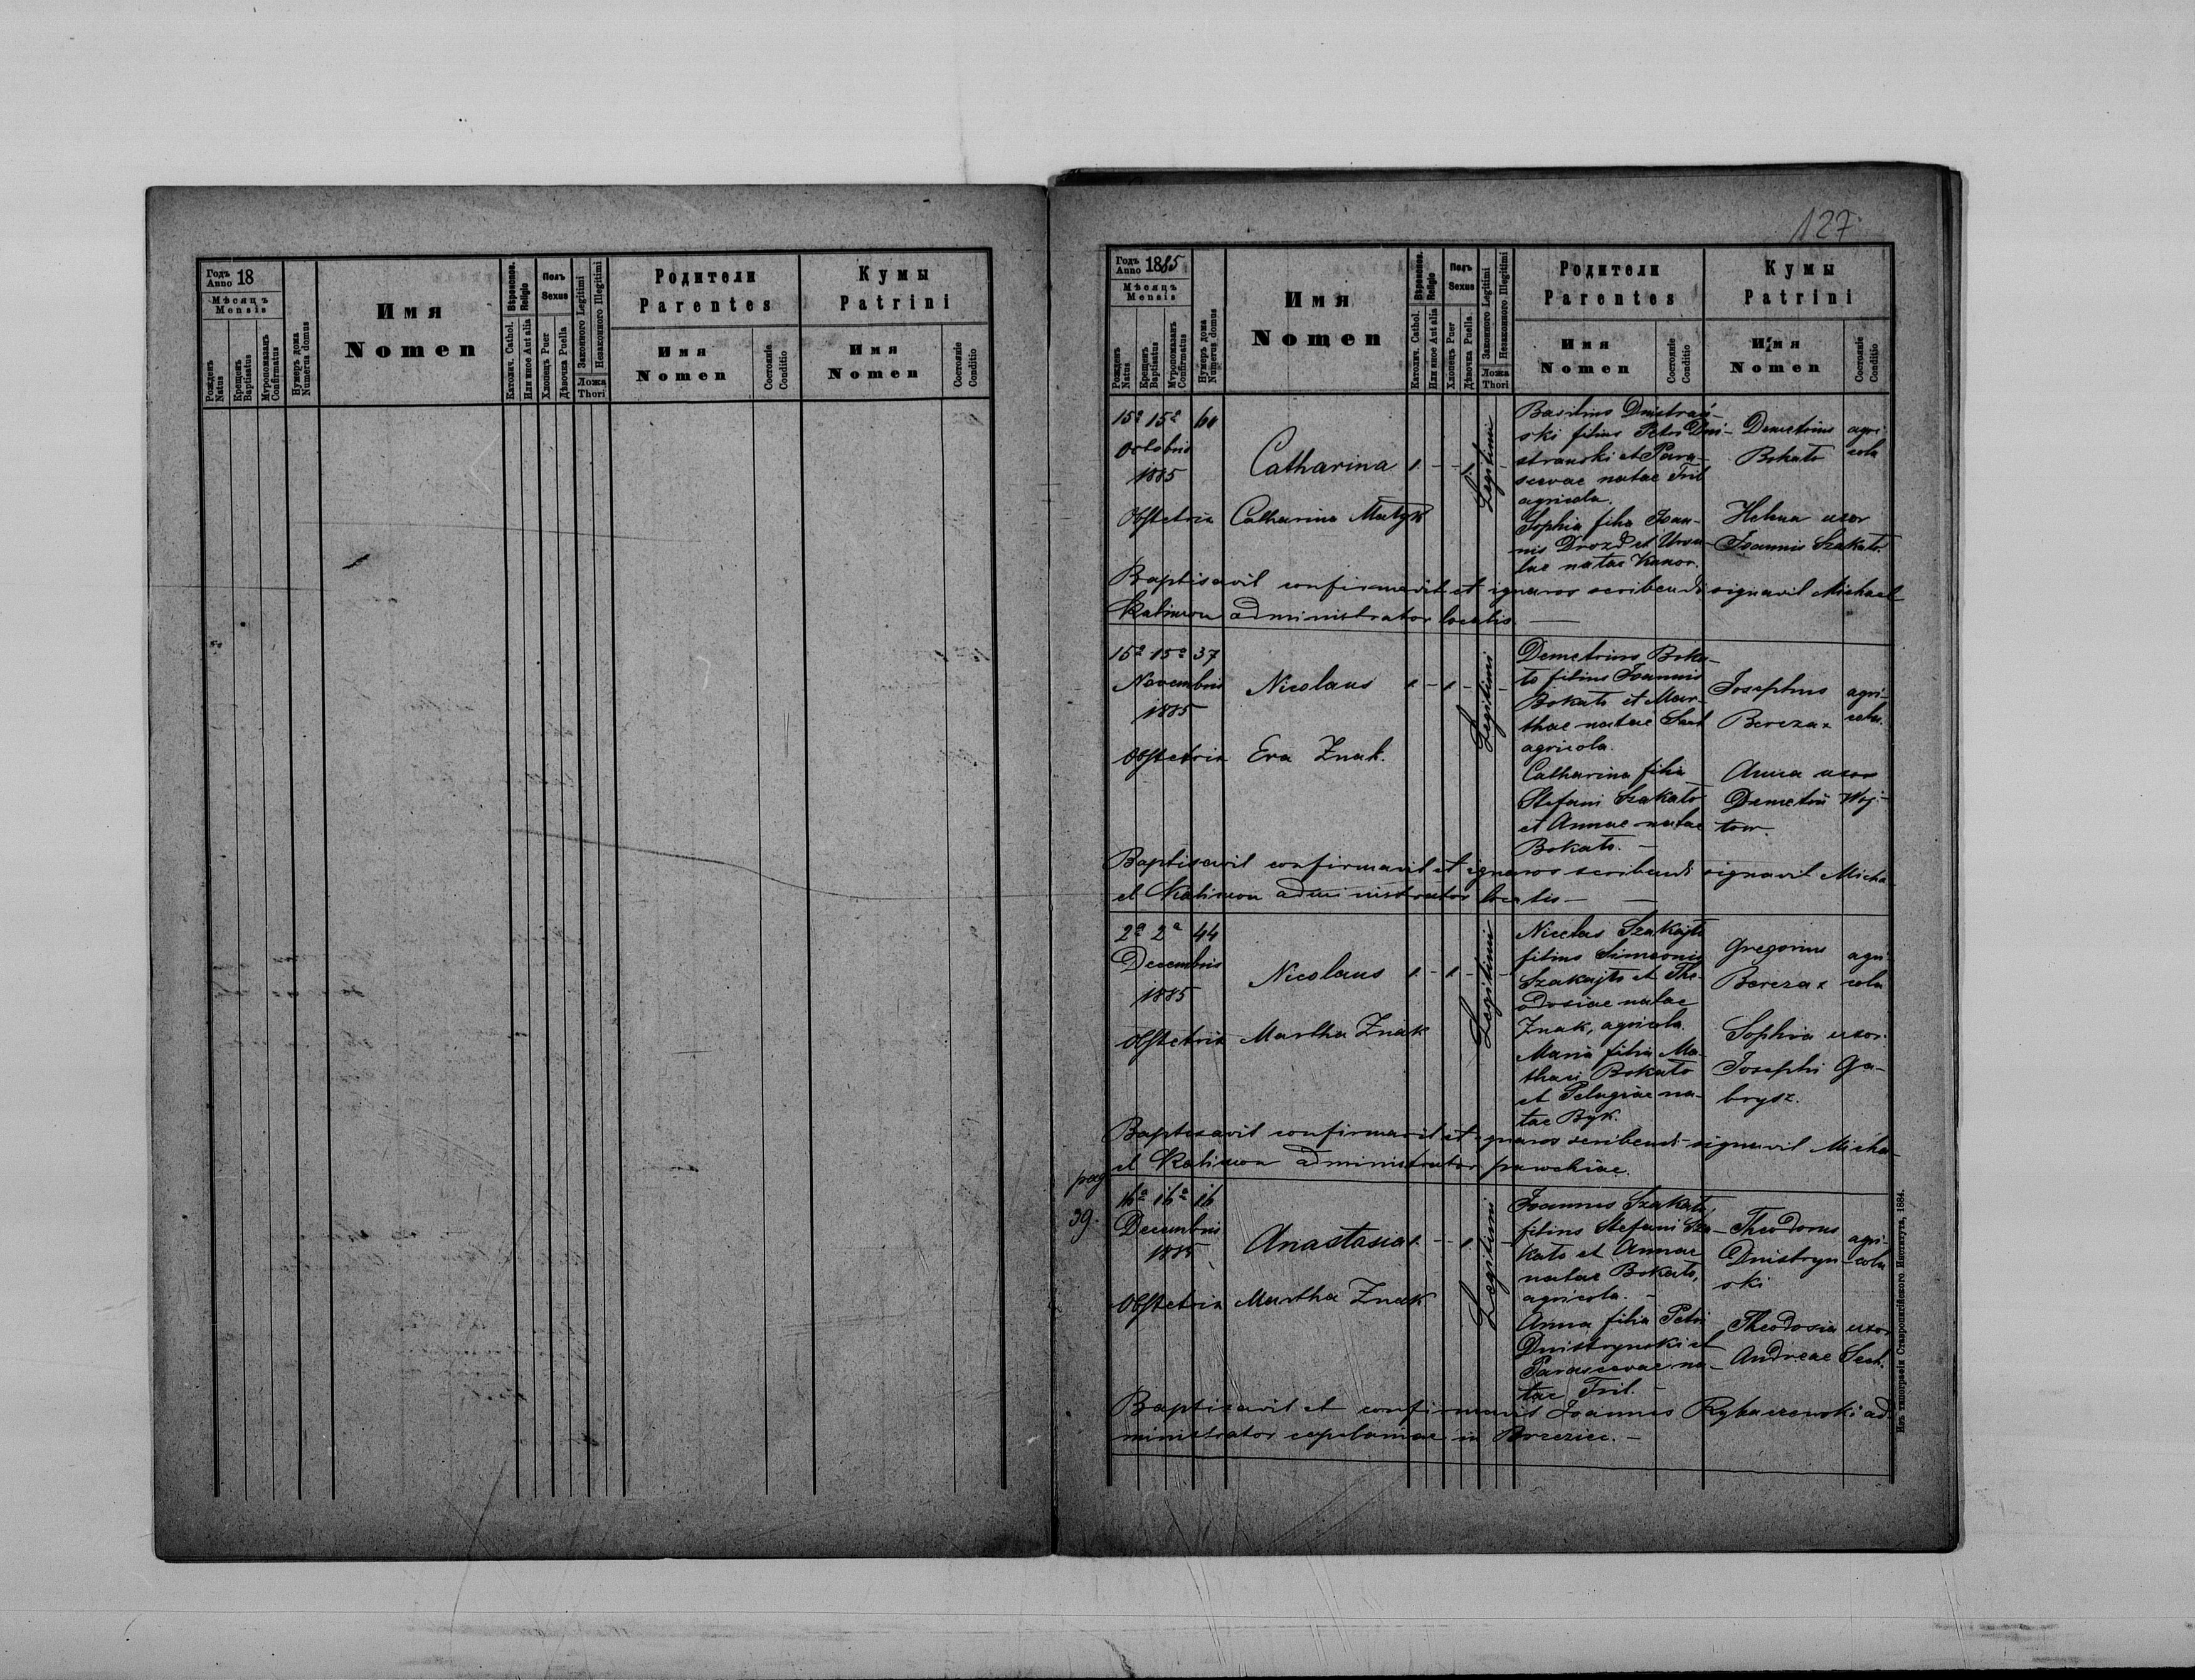 Годъ Anno 18
Мѣсяцъ Mensis
Рожденъ Natus
Крещенъ Baptisatus
Мѵропомазанъ Confirmatus
Нумеръ дома Numerus domus
Имя
Nomen
Вѣроиспов. Religio
Католич. Cathol.
Или иное Aut alia
Полъ Sexus
Хлопецъ Puer
Дѣвочка Puella
Законного Legitimi
Незаконного Illegitimi
Ложа Thori
Родители
Parentes
Имя
Nomen
Состояніе Conditio
Кумы
Patrini
Имя
Nomen
Состояніе Conditio
127
Годъ Anno 1885
Мѣсяцъ Mensis
Рожденъ Natus
Крещенъ Baptisatus
Мѵропомазанъ Confirmatus
Нумеръ дома Numerus domus
Имя
Nomen
Вѣроиспов. Religio
Католич. Cathol.
Или иное Aut alia
Полъ Sexus
Хлопецъ Puer
Дѣвочка Puella
Законного Legitimi
Незаконного Illegitimi
Ложа Thori
Родители
Parentes
Имя
Nomen
Состояніе Conditio
Кумы
Patrini
Имя
Nomen
Состояніе Conditio
15a 15a 60
Octobris
1885
Catharina 1. - - 1. Legitimi
Obstetrix Catharina Matyk
Basilius
ski filius Petri Dni-
stranski et Para-
scevae natae Fril
agricola.
Sophia filia Joan-
nis Drozd et Ursu-
lae natae
Demetrius agri-
Bokato cola
Helena uxor
Joannis Szakato.
Baptisavit confirmavit et ignaros scribendi signavit Michael
administrator localis. —
15a 15a 37
Novembris
1885
Nicolaus 1 - 1 - Legitimi -
Obstetrix Eva Znak.
Demetrius Boka-
to filius Joannis
Bokato et Mar-
thae natae
agricola.
Catharina filia
Stefani Szakato
et Annae natae
Bokato. —
Josephus agri-
Bereza x cola.
Anna uxor
Demetrii Woj-
tow.
Baptisavit confirmavit et ignaros scribendi signavit Micha-
el administrator localis — —
2a 2a 44
Decembris
1885
Nicolaus 1 - 1 - Legitimi -
Obstetrix Martha Znak
Nicetas Szakajto
filius Simeonis
Szakajto et The-
odosiae natae
Znak, agricola.
Maria filia Ma-
thaei Bokato
et Pelagiae na-
tae Byk.
Gregorius agri-
Bereza x cola
Sophia uxor
Josephi Ga-
brysz.
Baptisavit confirmavit et ignaros scribendi signavit Micha-
el administrator parochiae.
pag
39.
16a 16a 16
Decembris
1885
Anastasia 1. - - 1. - Legitimi
Obstetrix Martha Znak
Joannes Szakato,
filius Stefani Sza-
kato et Annae
natae Bokato,
agricola. —
Anna filia Petri
Dnistrynski et
Parascevae na-
tae Fril. —
Theodorus agri-
Dnistryn- cola
ski
Theodosia uxor
Andreae
Baptisavit et confirmavit Joannes ad-
ministrator capelaniae in —
Изъ типографіи Ставропигійского Института, 1884.